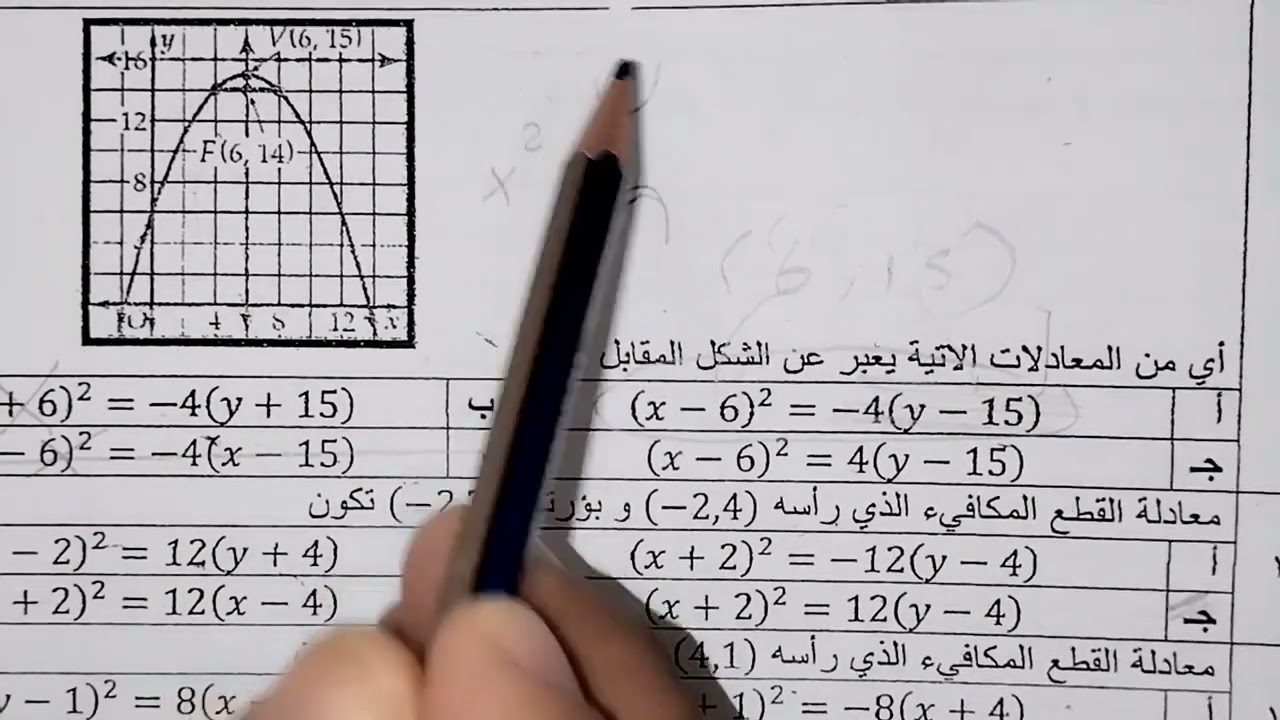 y
V(6, 15)
16
12
F(6, 14)
8
4 8 12 x
x²
(6, 15)
أي من المعادلات الاتية يعبر عن الشكل المقابل
أ (x − 6)² = −4(y − 15) ب + 6)² = −4(y + 15)
جـ (x − 6)² = 4(y − 15) − 6)² = −4(x − 15)
معادلة القطع المكافيء الذي رأسه (−2,4) و بؤرته تكون
أ (x + 2)² = −12(y − 4) − 2)² = 12(y + 4)
جـ (x + 2)² = 12(y − 4) + 2)² = 12(x − 4)
معادلة القطع المكافيء الذي رأسه (4,1)
أ + 1)² = −8(x + 4) y − 1)² = 8(x